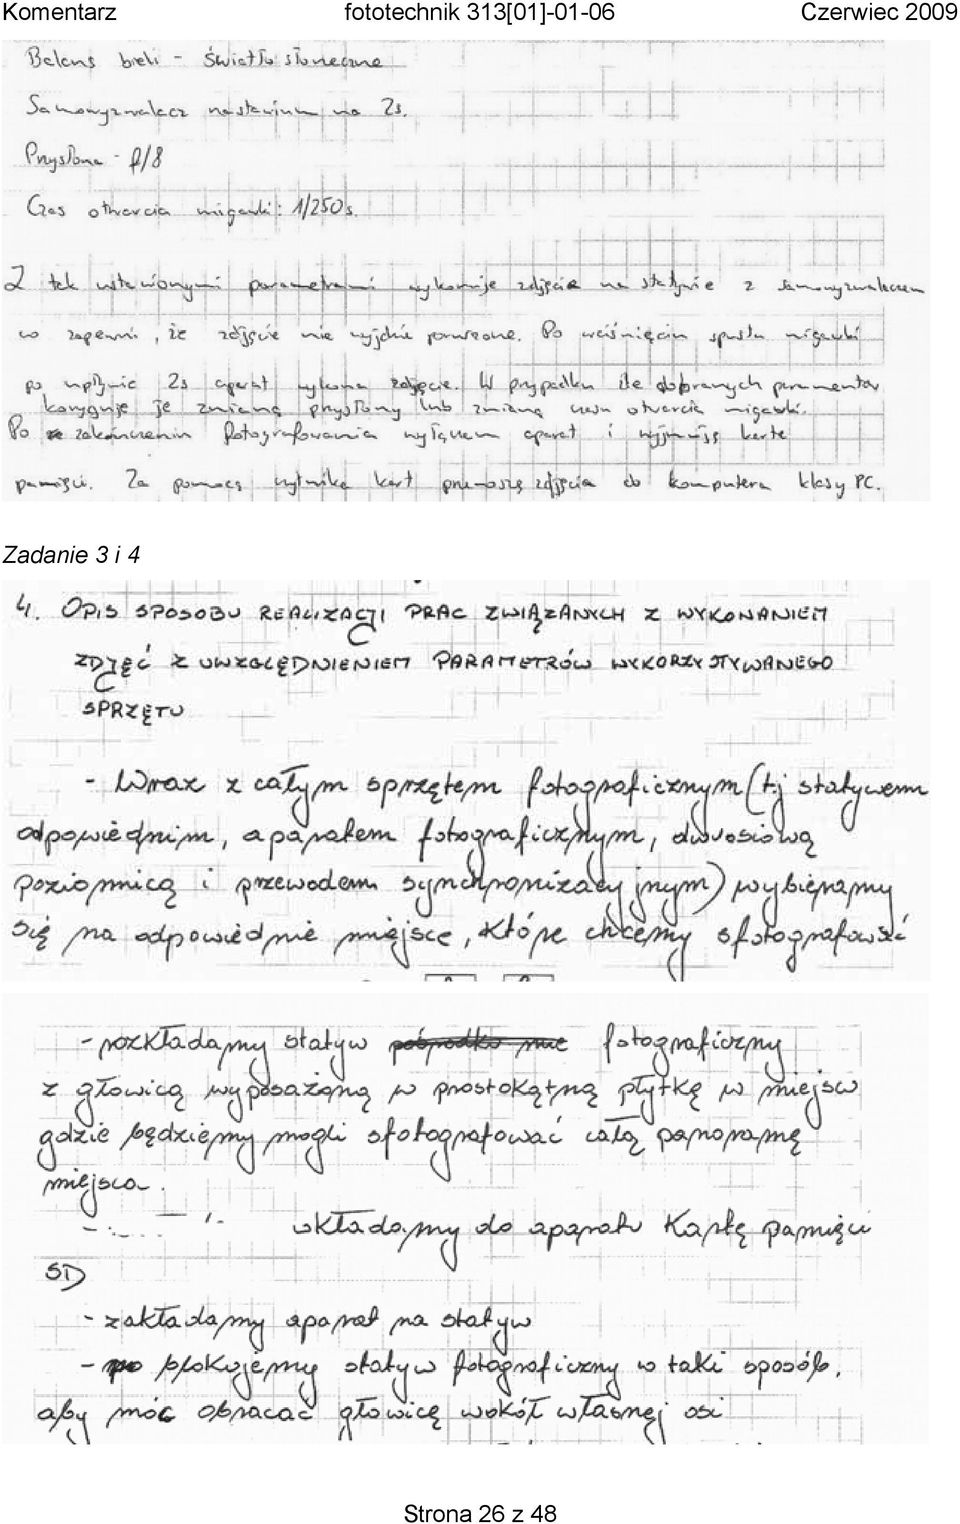 Komentarz fototechnik 313[01]-01-06 Czerwiec 2009
Balans bieli - Światło słoneczne
Samowyzwalacz nastawiam na 2s.
Przysłona - f/8
Czas otwarcia migawki: 1/250s.
Z tak ustawionymi parametrami wykonuje zdjęcie na statywie z samowyzwalaczem
co zapewni, że zdjęcie nie wyjdzie poruszone. Po wciśnięciu spustu migawki
po upływie 2s aparat wykona zdjęcie. W przypadku źle dobranych parametrów
koryguje je zmianą przysłony lub zmianą czasu otwarcia migawki.
Po zakończeniu fotografowania wyłączam aparat i wyjmuję karte
pamięci. Za pomocą czytnika kart przenoszę zdjęcia do komputera klasy PC.
Zadanie 3 i 4
4. OPIS SPOSOBU REALIZACJI PRAC ZWIĄZANYCH Z WYKONANIEM
ZDJĘĆ Z UWZGLĘDNIENIEM PARAMETRÓW WYKORZYSTYWANEGO
SPRZĘTU
- Wraz z całym sprzętem fotograficznym (tj statywem
odpowiednim, aparatem fotograficznym, dwuosiową
poziomnicą i przewodem synchronizacyjnym) wybieramy
się na odpowiednie miejsce, które chcemy sfotografować
- rozkładamy statyw fotograficzny
z głowicą wyposażoną w prostokątną płytkę w miejscu
gdzie będziemy mogli sfotografować całą panoramę
miejsca.
- wkładamy do aparatu kartę pamięci
SD
- zakładamy aparat na statyw
- blokujemy statyw fotograficzny w taki sposób,
aby móc obracać głowicę wokół własnej osi
Strona 26 z 48